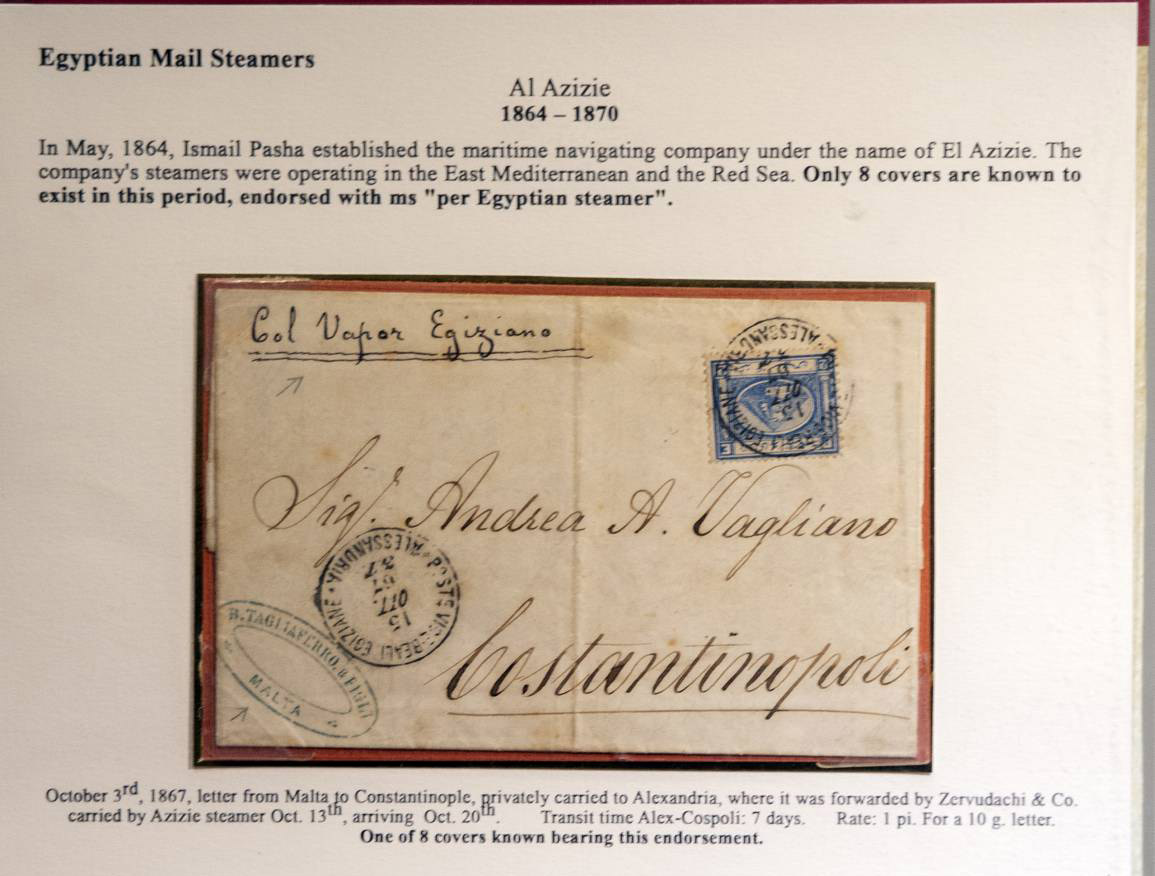 Egyptian Mail Steamers
Al Azizie
1864 – 1870
In May, 1864, Ismail Pasha established the maritime navigating company under the name of El Azizie. The
company's steamers were operating in the East Mediterranean and the Red Sea. Only 8 covers are known to
exist in this period, endorsed with ms "per Egyptian steamer".
Col Vapor Egiziano
Sigr. Andrea A. Vagliano
Costantinopoli
POSTE VICE-REALI EGIZIANE
ALESSANDRIA
13
OTT
67
B. TAGLIAFERRO & FIGLI
MALTA
October 3rd, 1867, letter from Malta to Constantinople, privately carried to Alexandria, where it was forwarded by Zervudachi & Co.
carried by Azizie steamer Oct. 13th, arriving Oct. 20th. Transit time Alex-Cospoli: 7 days. Rate: 1 pi. For a 10 g. letter.
One of 8 covers known bearing this endorsement.